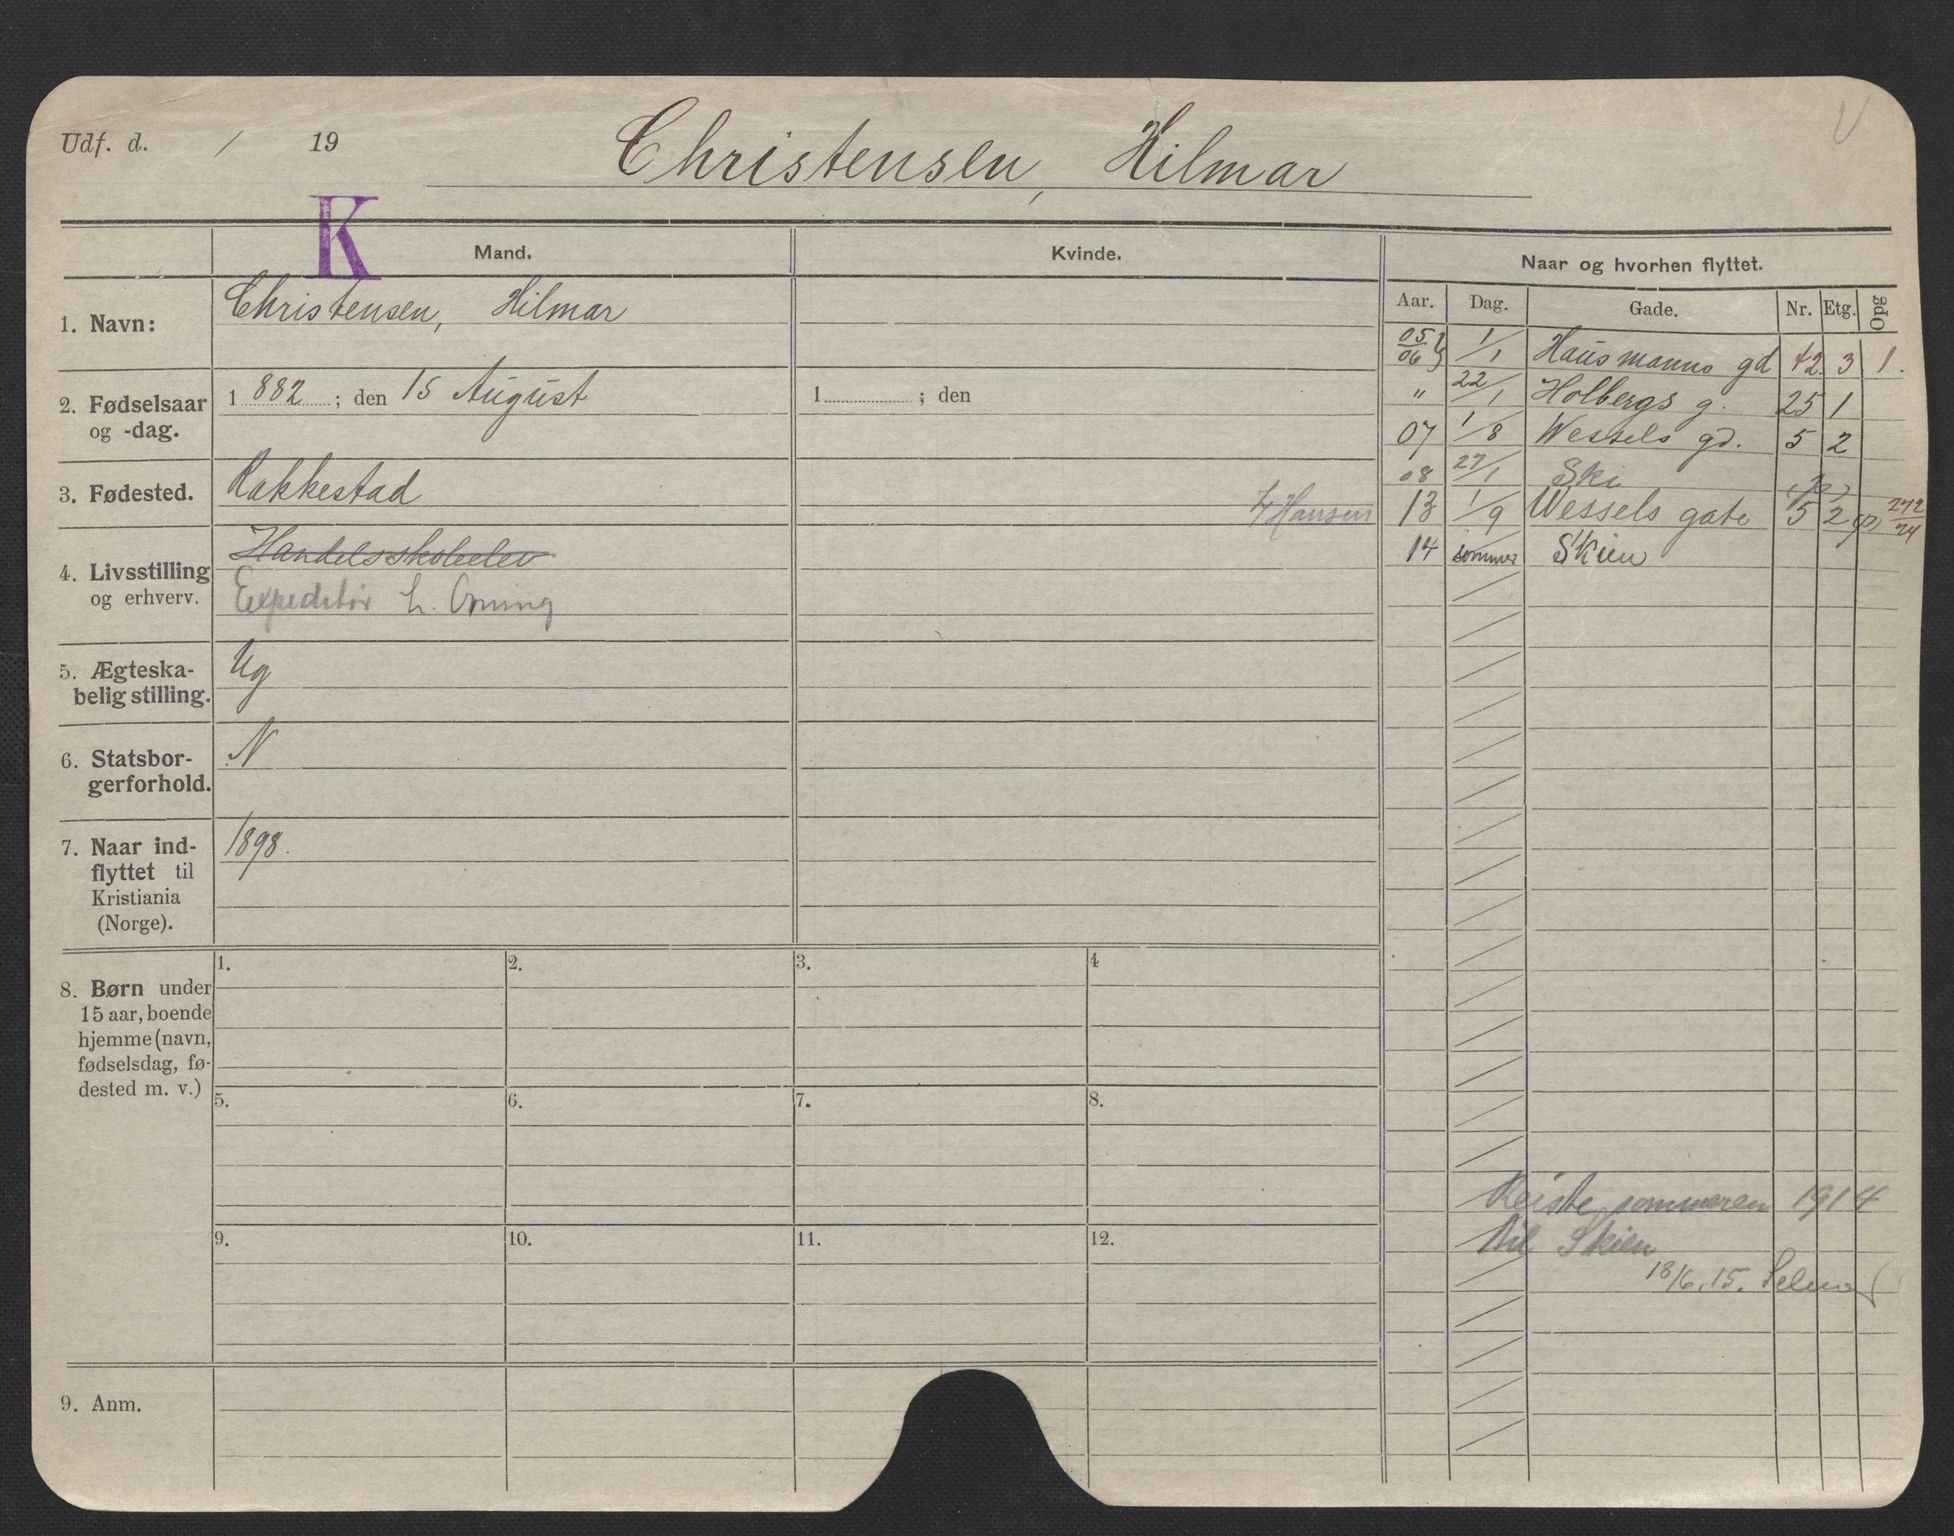 Udf. d. / 19
Christensen, Hilmar
K
Mand.
Kvinde.
Naar og hvorhen flyttet.
Aar. Dag. Gade. Nr. Etg. Opg
1. Navn: Christensen, Hilmar
2. Fødselsaar og -dag.
1 882 ; den 15 August
1 ; den
3. Fødested. Rakkestad
4. Livsstilling og erhverv.
Handelsskoleelev
Expeditør
5. Ægteska-
belig stilling.
Ug
6. Statsbor-
gerforhold.
N
7. Naar ind-
flyttet til
Kristiania
(Norge).
1898.
8. Børn under
15 aar, boende
hjemme (navn,
fødselsdag, fø-
dested m. v.)
1. 2. 3. 4
5. 6. 7. 8.
9. 10. 11. 12.
9. Anm.
05/06 1/1 Hausmanns gd 42 3 1.
" 22/1 Holbergs g. 25 1
07 1/8 Wessels gd. 5 2
08 27/1 Ski
Hansen 13 1/9 Wessels gate 5 2 (p) 272/24
14 sommer Skien
Reiste sommeren 1914
til Skien
18/6.15. Selmer